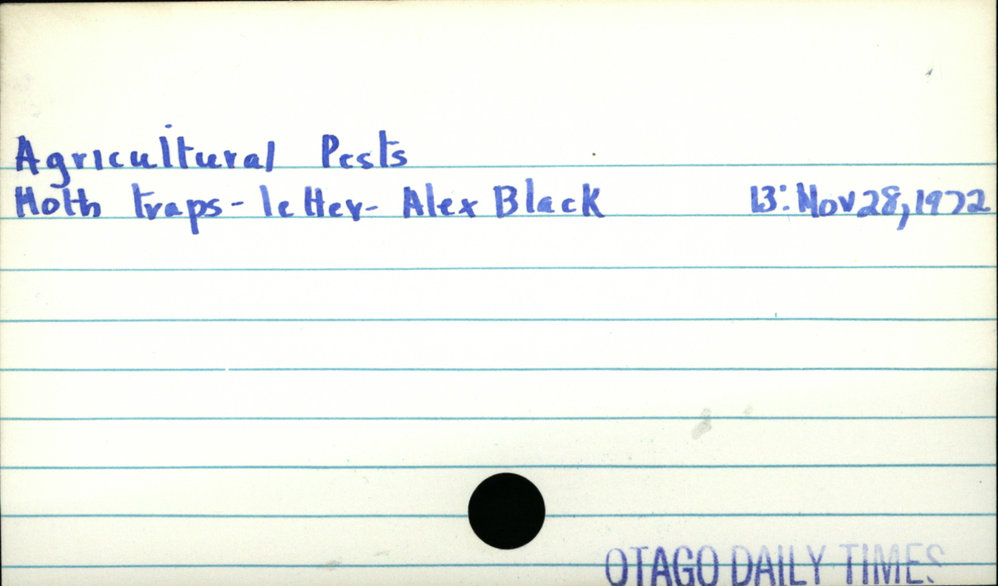 Agricultural Pests
Moth traps - letter - Alex Black 13: Nov 28, 1972
OTAGO DAILY TIMES